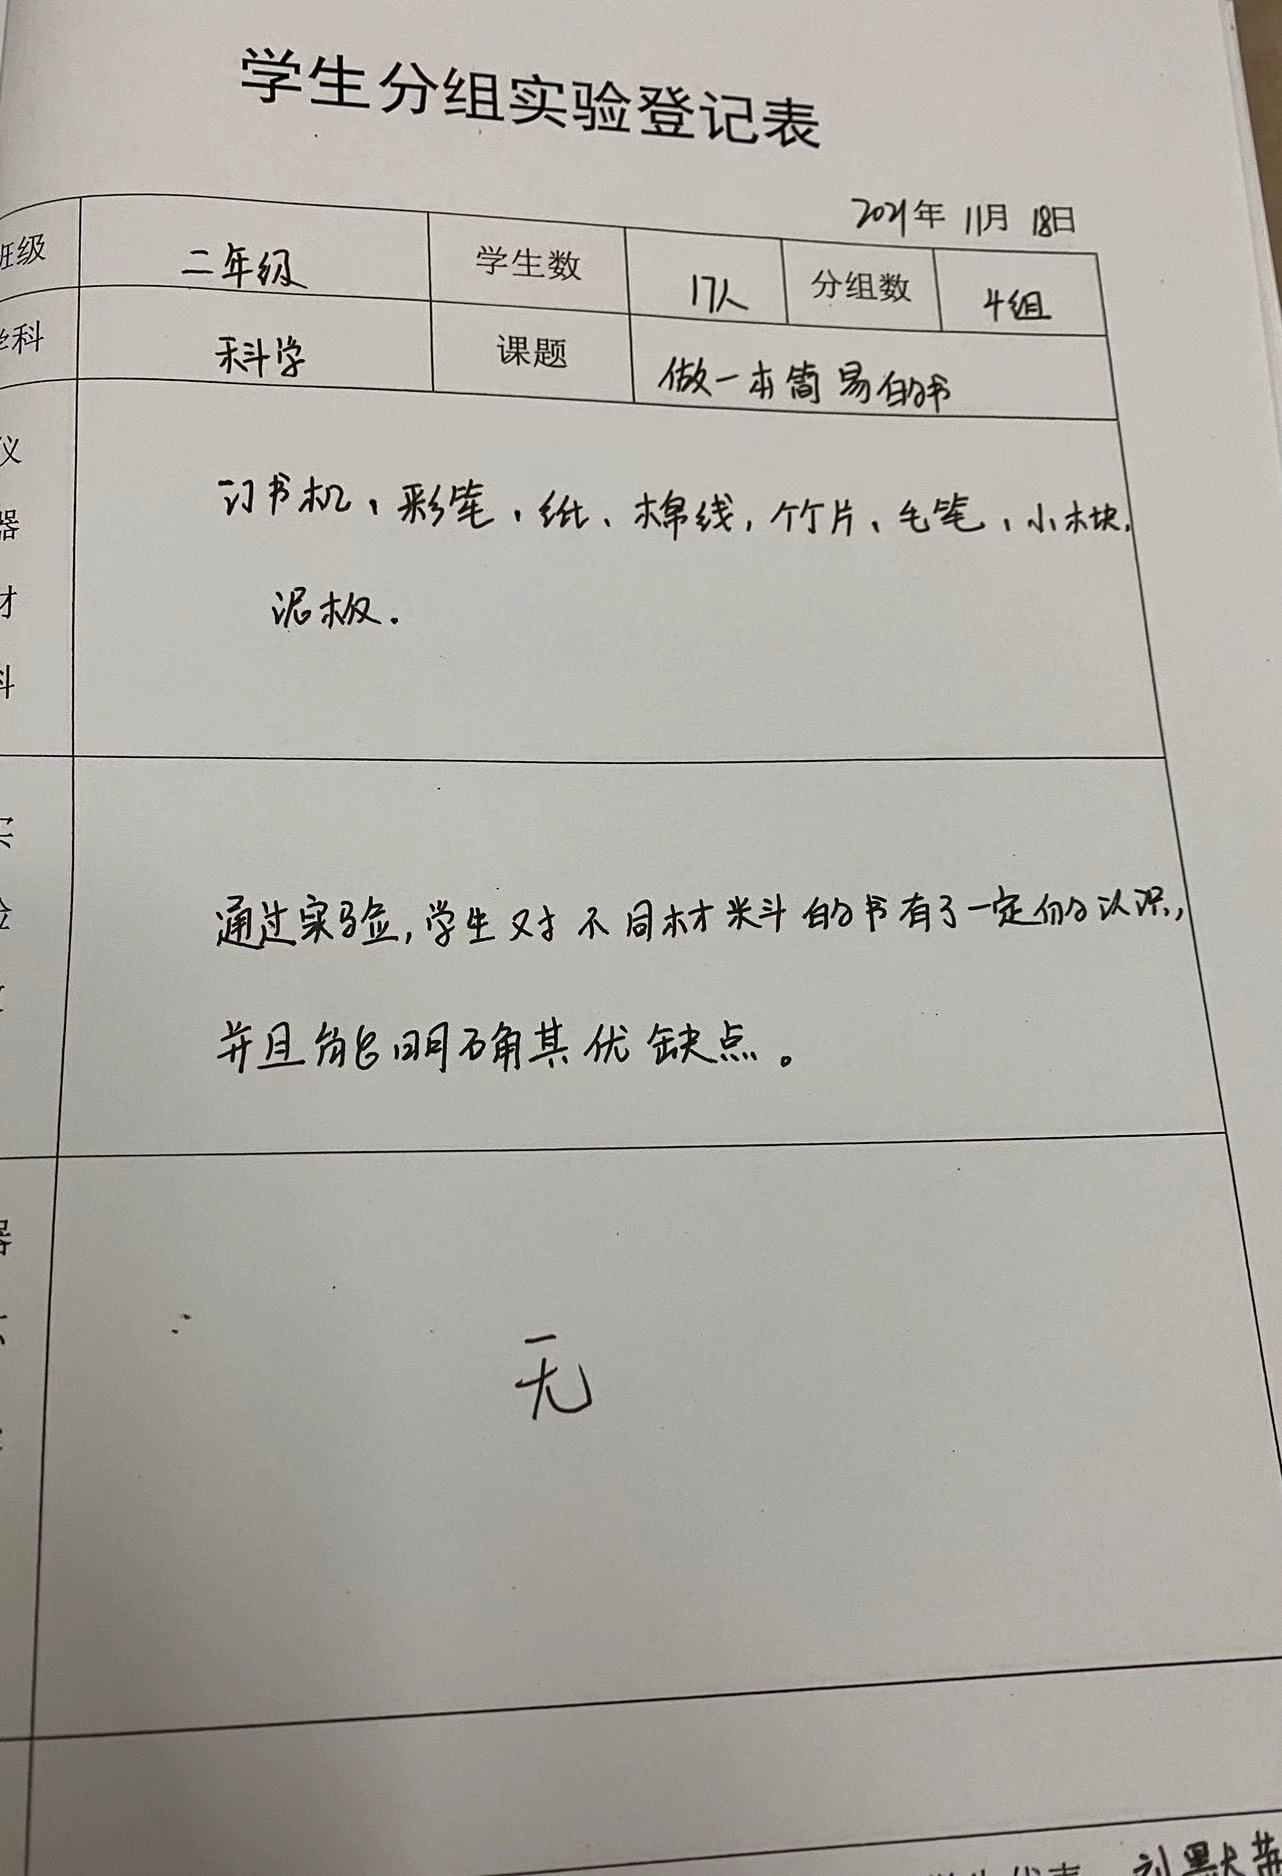 学生分组实验登记表
2021年 11月 18日
班级 二年级 学生数 17人 分组数 4组
学科 科学 课题 做一本简易的书
仪器材料
订书机、彩笔、纸、棉线,竹片、毛笔、小木块,
泥板.
实验
通过实验,学生对不同材料的书有了一定的认识,
并且能明确其优缺点。
器
无
学生代表